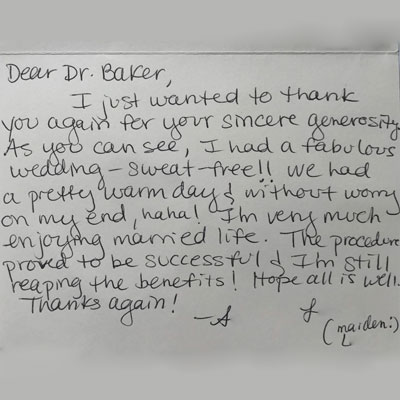 Dear Dr. Baker,
I just wanted to thank
you again for your sincere generosity.
As you can see, I had a fabulous
wedding - sweat-free!! We had
a pretty warm day & without worry
on my end, haha! I'm very much
enjoying married life. The procedure
proved to be successful & I'm still
reaping the benefits! Hope all is well.
Thanks again!
-A
(maiden:)
L